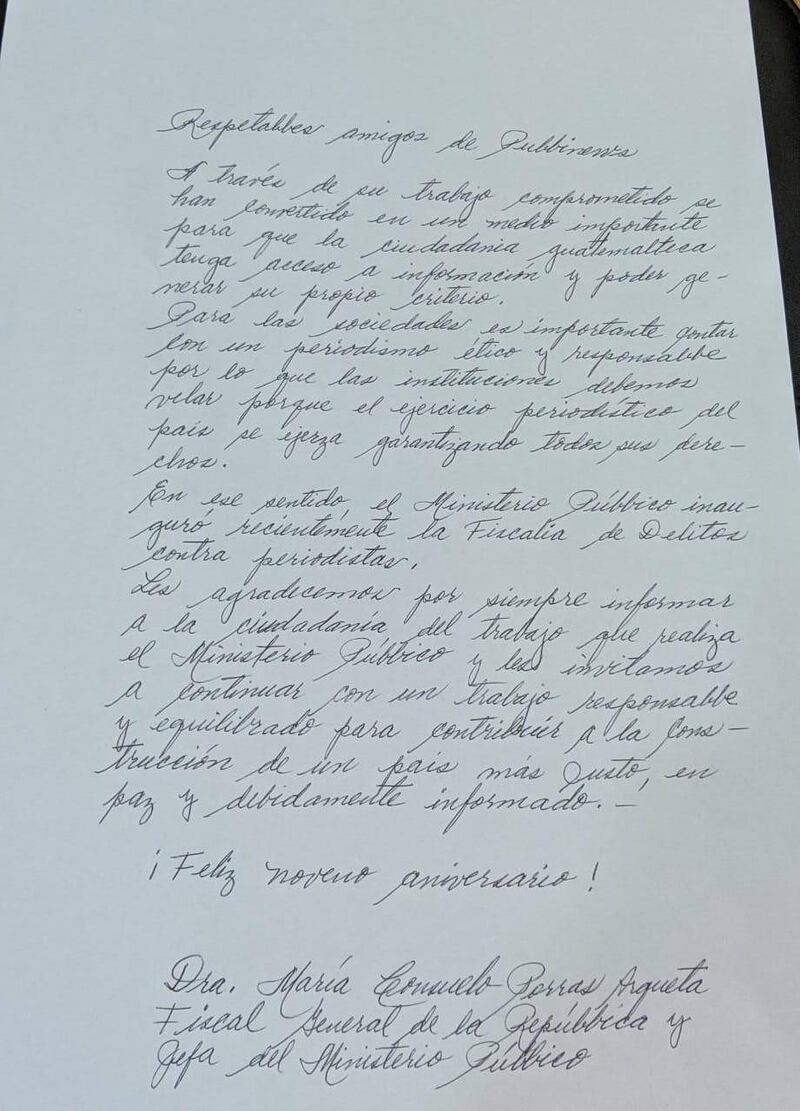 Respetables amigos de Publinews
A través de su trabajo comprometido se
han convertido en un medio importante
para que la ciudadanía guatemalteca
tenga acceso a información y poder ge-
nerar su propio criterio.
Para las sociedades es importante contar
con un periodismo ético y responsable
por lo que las instituciones debemos
velar porque el ejercicio periodístico del
país se ejerza garantizando todos sus dere-
chos.
En ese sentido, el Ministerio Público inau-
guró recientemente la Fiscalía de Delitos
contra periodistas.
Les agradecemos por siempre informar
a la ciudadanía del trabajo que realiza
el Ministerio Público y les invitamos
a continuar con un trabajo responsable
y equilibrado para contribuir a la Cons-
trucción de un país más Justo, en
paz y debidamente informado.-
¡Feliz noveno aniversario!
Dra. María Consuelo Porras Argueta
Fiscal General de la República y
Jefa del Ministerio Público